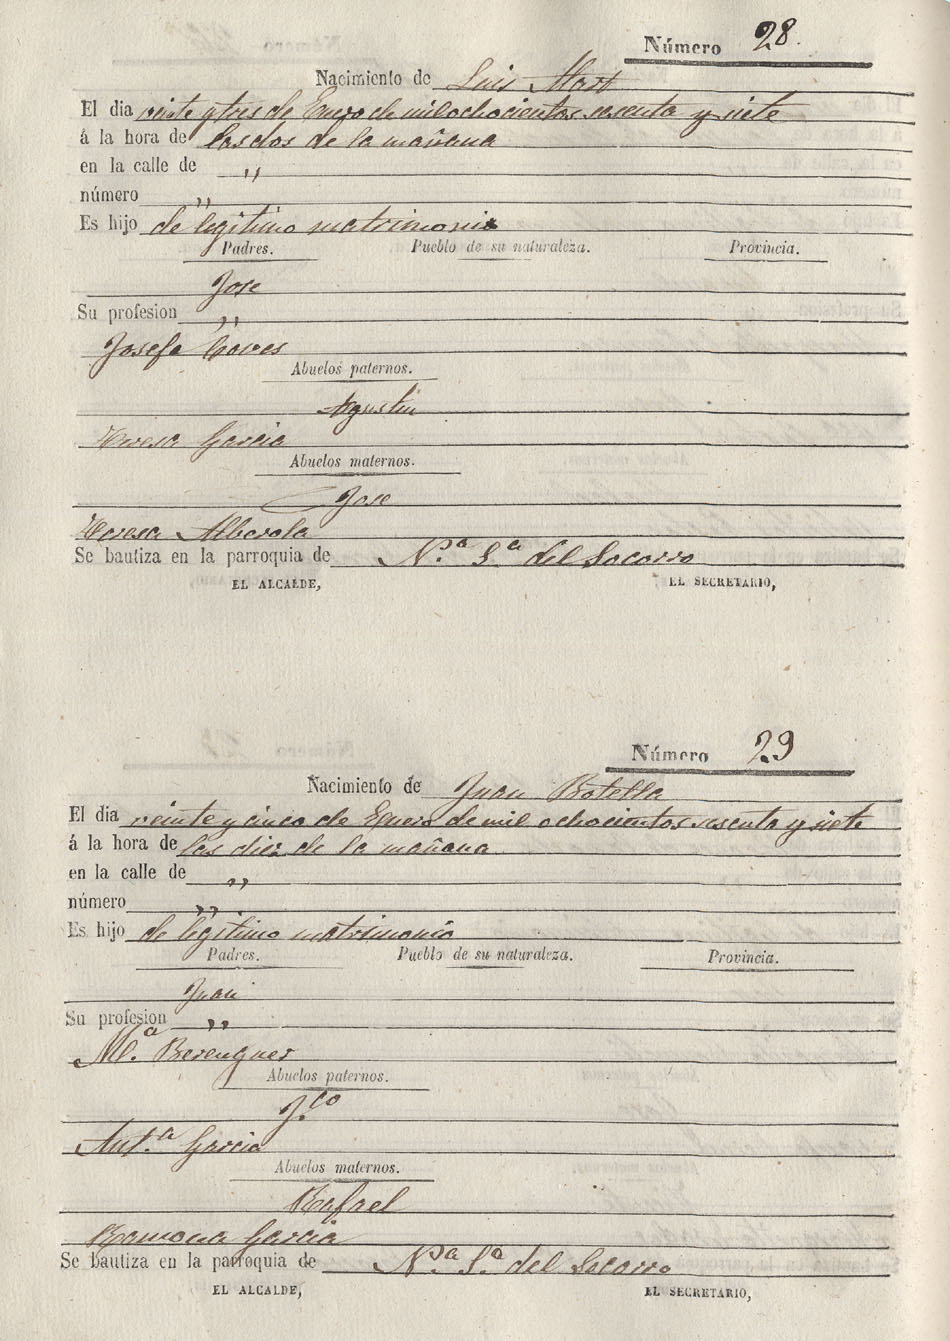 Número 28.
Nacimiento de Luis Mart
El dia veinte y tres de Enero de mil ochocientos sesenta y siete
á la hora de las dos de la mañana
en la calle de „
número „
Es hijo de legitimo matrimonio
Padres. Pueblo de su naturaleza. Provincia.
Jose
Su profesion „
Josefa Coves
Abuelos paternos.
Agustin
Teresa Garcia
Abuelos maternos.
Jose
Teresa Alberola
Se bautiza en la parroquia de N.ª S.ª del Socorro
EL ALCALDE, EL SECRETARIO,
Número 29
Nacimiento de Juan Botella
El dia veinte y cinco de Enero de mil ochocientos sesenta y siete
á la hora de las diez de la mañana
en la calle de „
número „
Es hijo de legitimo matrimonio
Padres. Pueblo de su naturaleza. Provincia.
Juan
Su profesion „
M.ª Berenguer
Abuelos paternos.
J.co
Ant.ª Garcia
Abuelos maternos.
Rafael
Ramona Garcia
Se bautiza en la parroquia de N.ª S.ª del Socorro
EL ALCALDE, EL SECRETARIO,